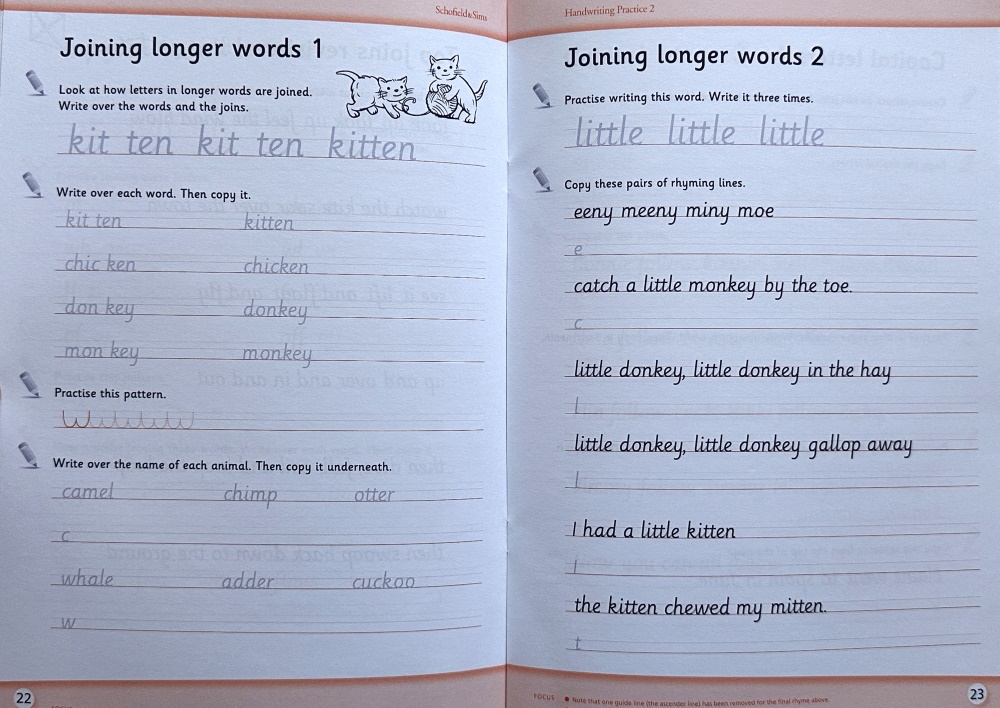 Schofield & Sims
Joining longer words 1
Look at how letters in longer words are joined.
Write over the words and the joins.
kit ten kit ten kitten
Write over each word. Then copy it.
kit ten kitten
chic ken chicken
don key donkey
mon key monkey
Practise this pattern.
Write over the name of each animal. Then copy it underneath.
camel chimp otter
c
whale adder cuckoo
w
22
Handwriting Practice 2
Joining longer words 2
Practise writing this word. Write it three times.
little little little
Copy these pairs of rhyming lines.
eeny meeny miny moe
e
catch a little monkey by the toe.
c
little donkey, little donkey in the hay
l
little donkey, little donkey gallop away
l
I had a little kitten
I
the kitten chewed my mitten.
t
FOCUS • Note that one guide line (the ascender line) has been removed for the final rhyme above.
23